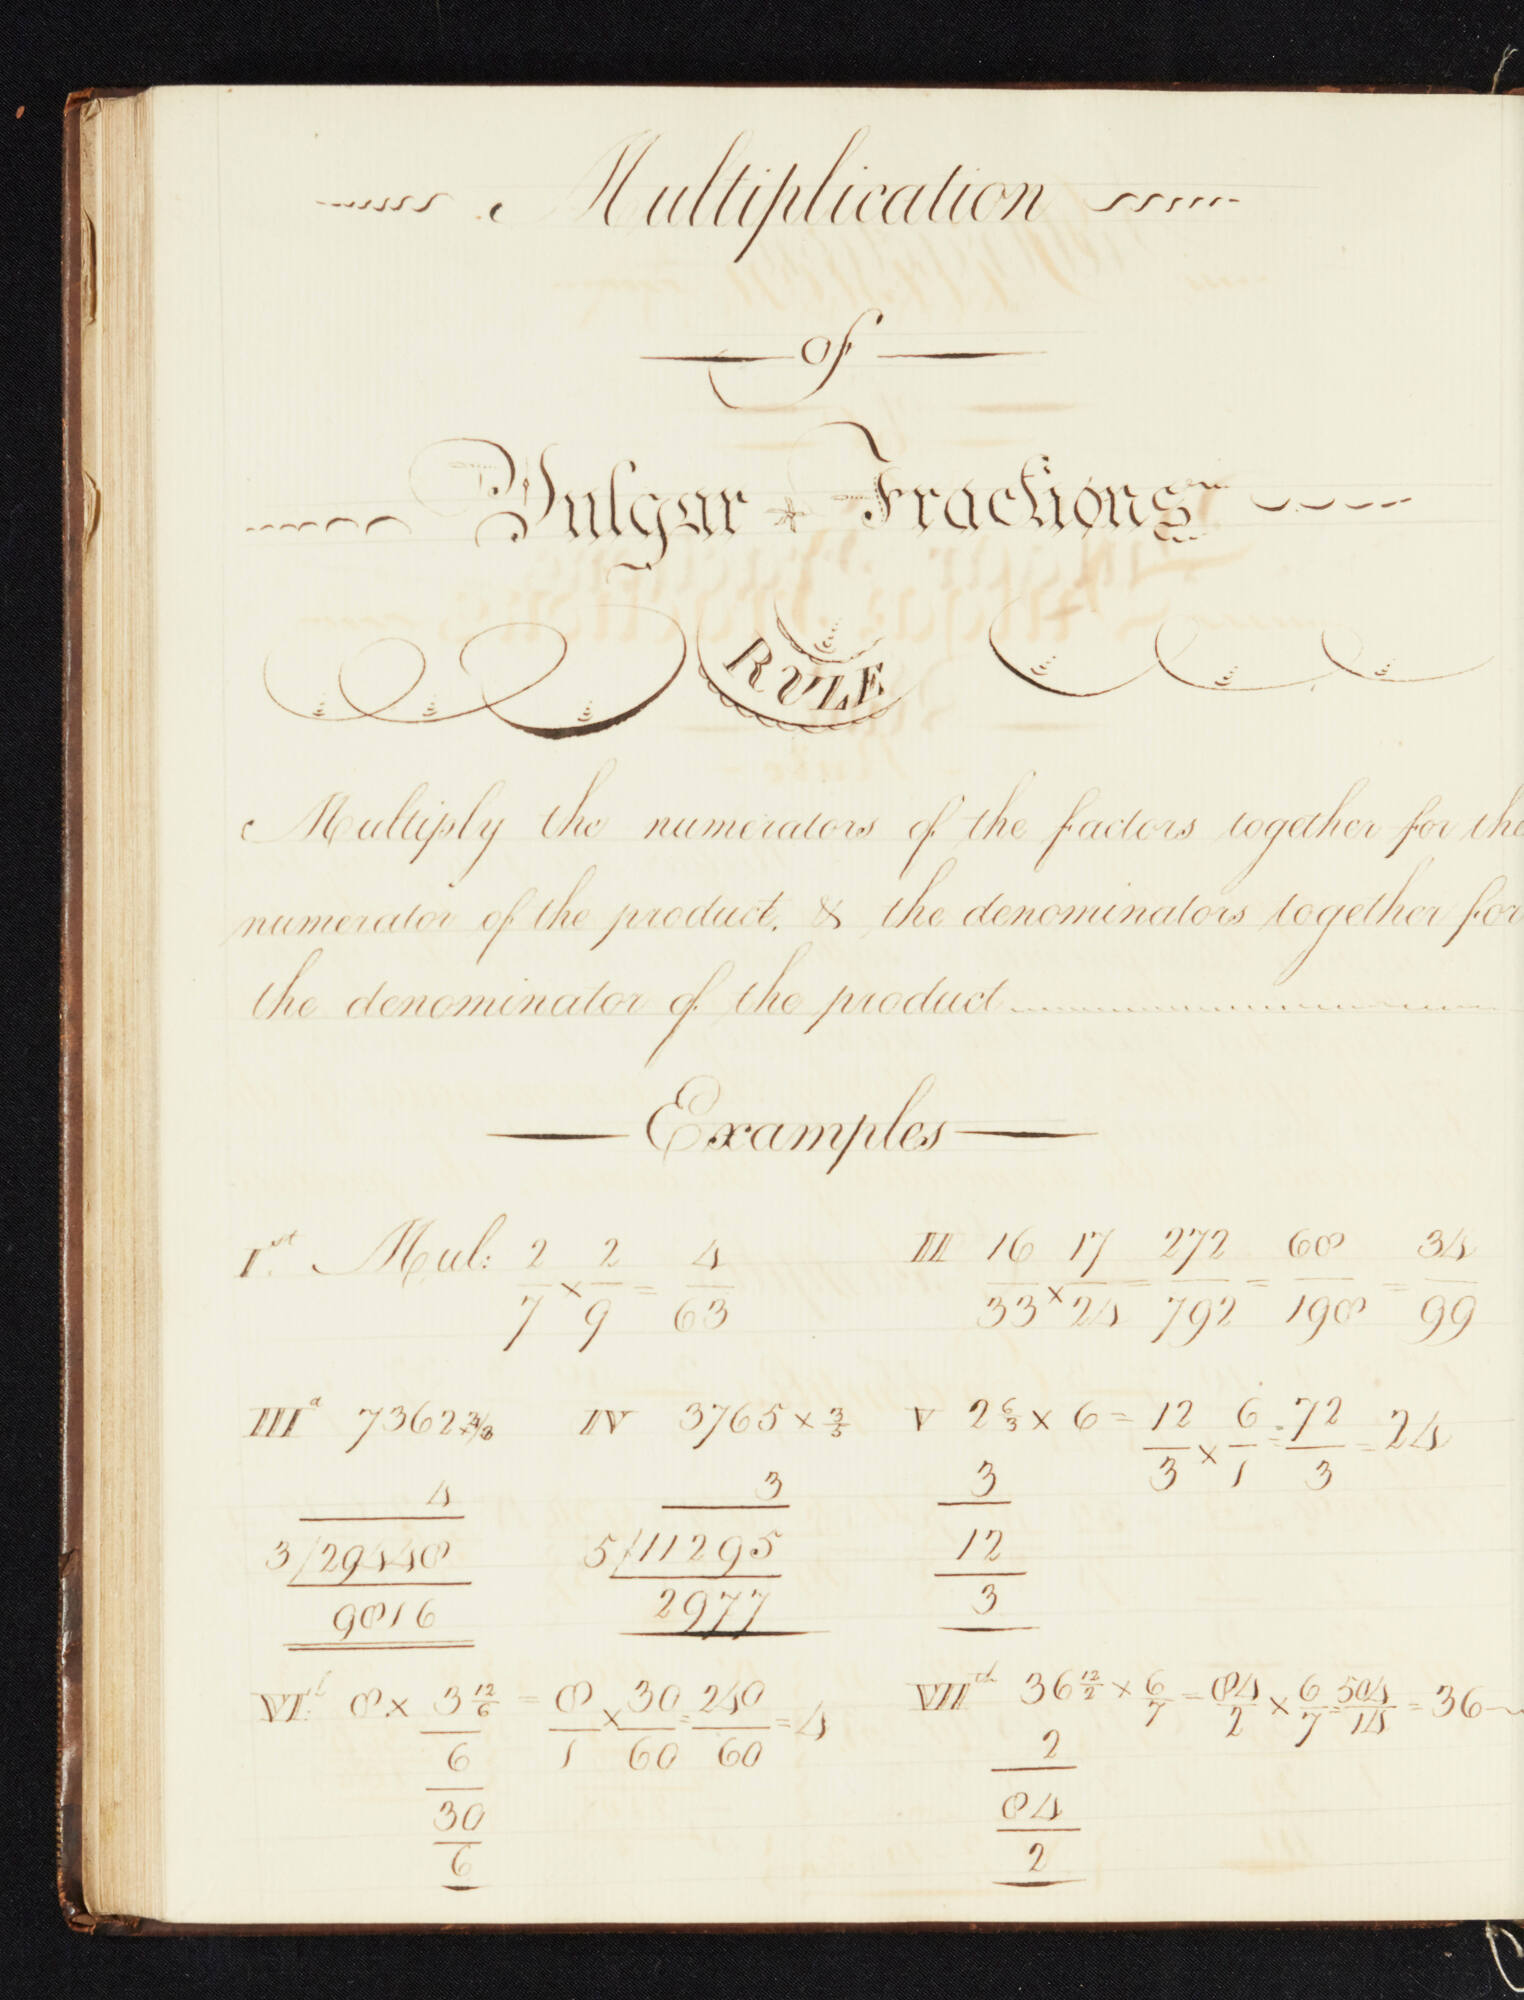 Multiplication
of
Vulgar Fractions
RULE
Multiply the numerators of the factors together for the
numerator of the product, & the denominators together for
the denominator of the product
Examples
Ist. Mul: 2/7 × 2/9 = 4/63
II 16/33 × 17/24 = 272/792 = 68/198 = 34/99
IIId 7362 × 4/3
4
3/29448
9816
IV 3765 × 3/5
3
5/11295
2977
V 2 6/3 × 6 = 12/3 × 6/1 = 72/3 = 24
3
12
3
VI. 8 × 3 12/6 = 8/1 × 30/60 = 240/60 = 4
6
30
6
VIIth 36 12/2 × 6/7 = 84/2 × 6/7 = 504/14 = 36
2
84
2